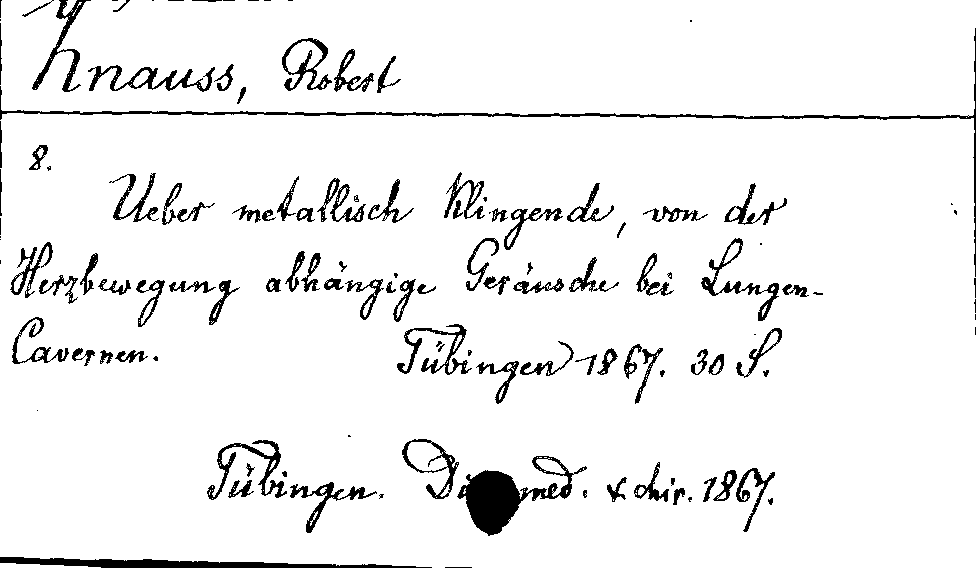 Knauss, Robert
8.
Ueber metallisch klingende, von der
Herzbewegung abhängige Geräusche bei Lungen-
Cavernen.
Tübingen 1867. 30 S.
Tübingen. med. & chir. 1867.